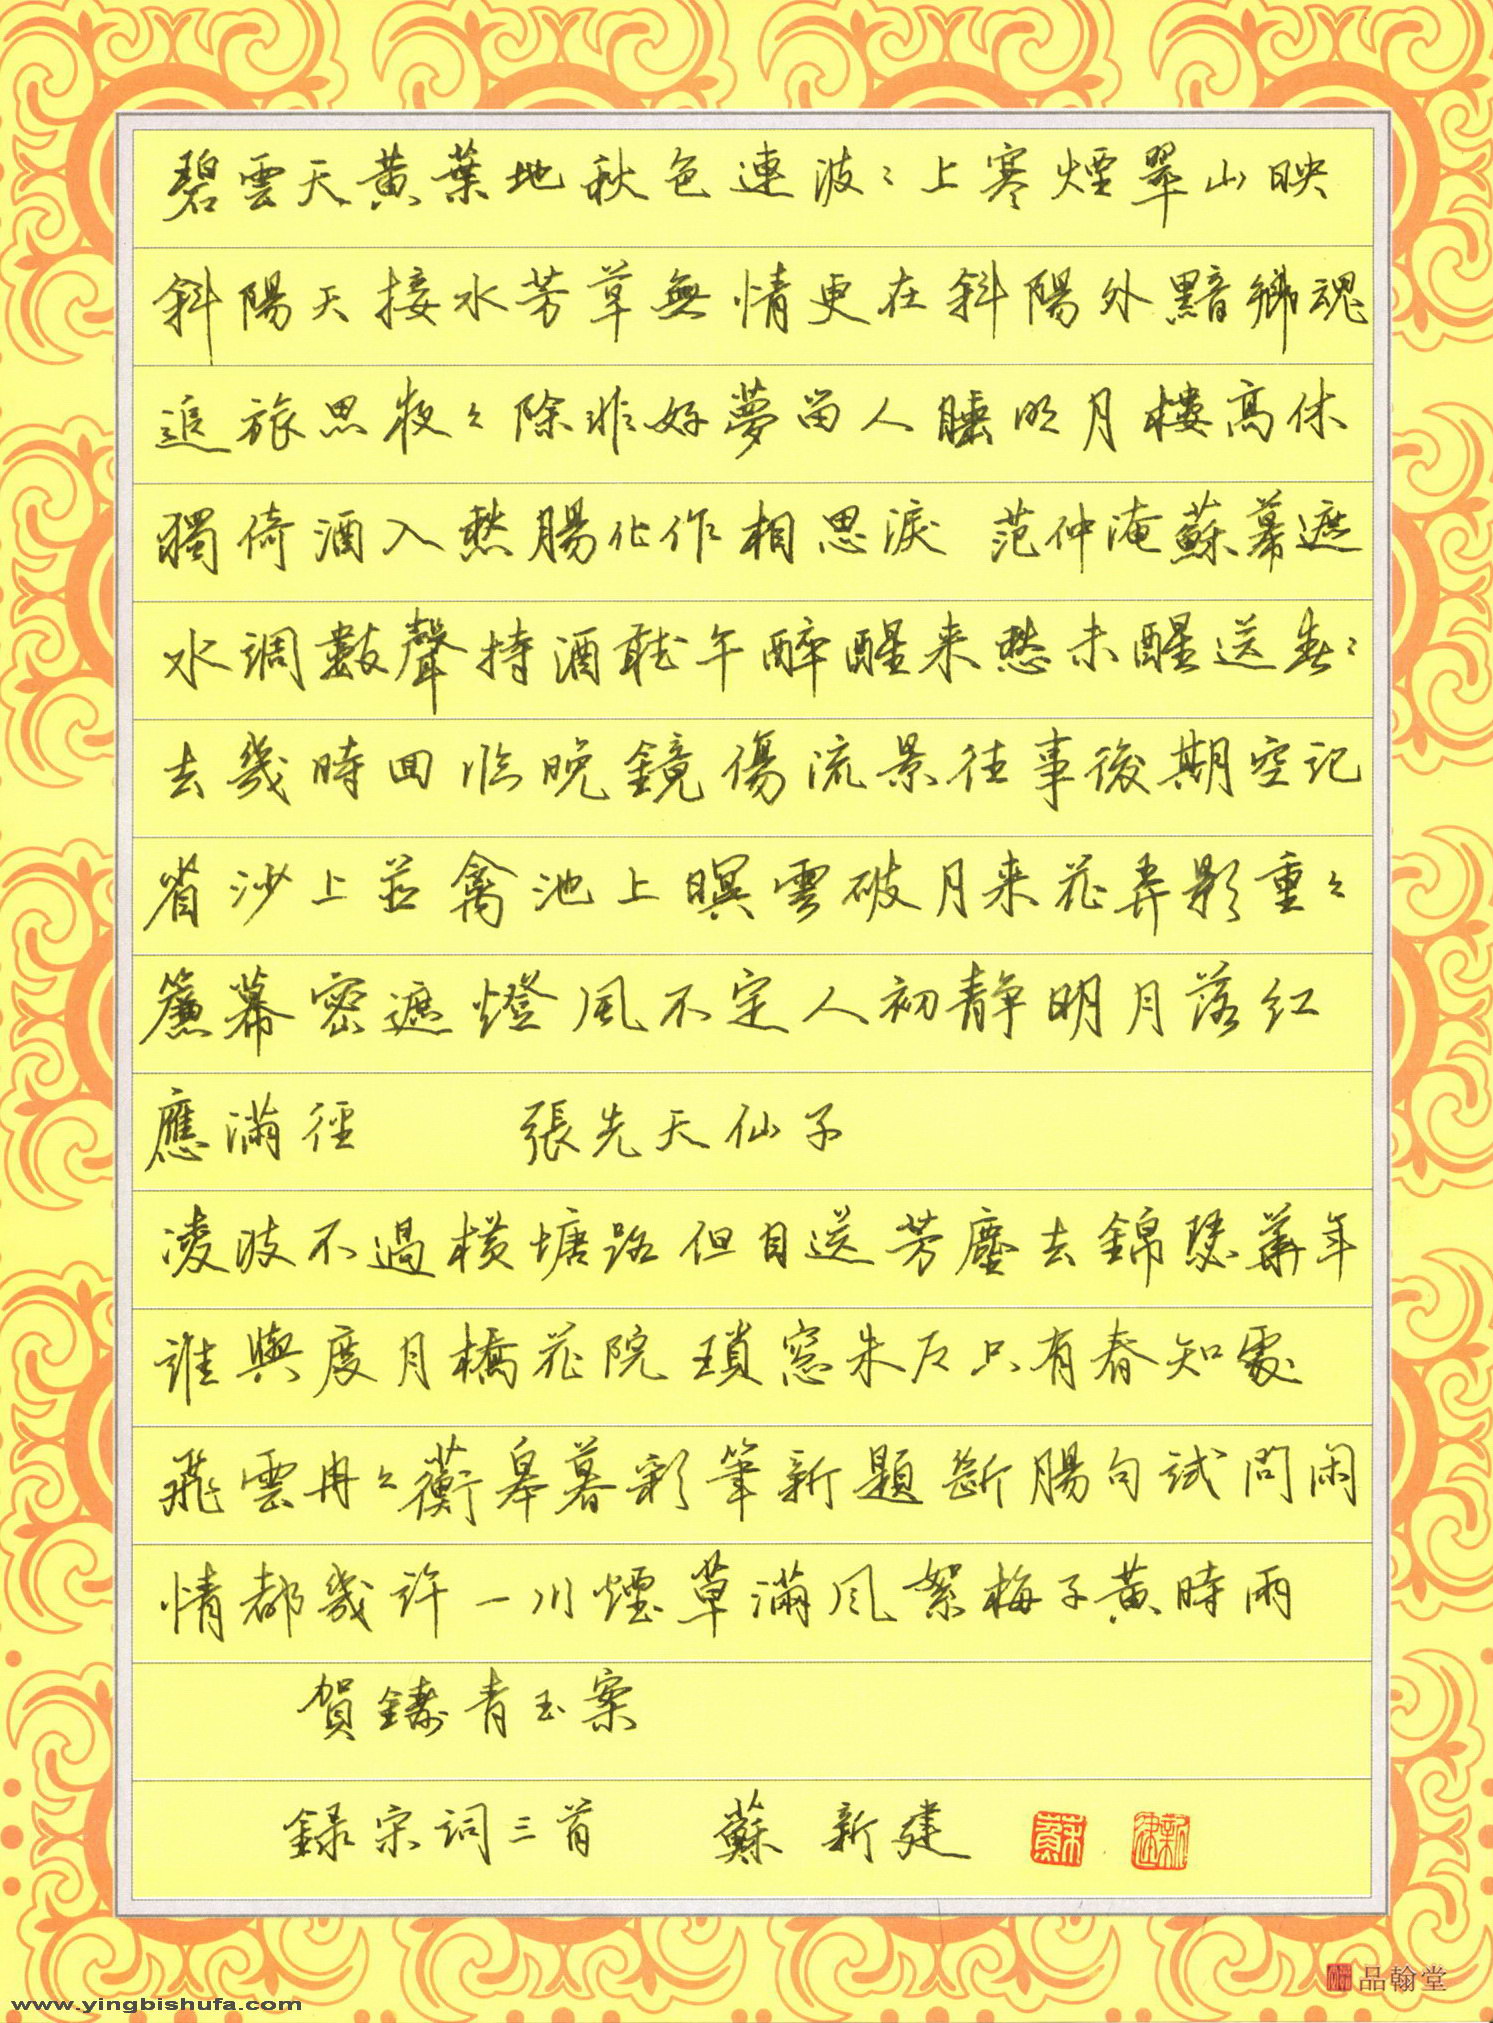 碧雲天黄葉地秋色連波〻上寒煙翠山映
斜陽天接水芳草無情更在斜陽外黯鄉魂
追旅思夜〻除非好夢留人睡明月樓高休
獨倚酒入愁腸化作相思淚 范仲淹蘇幕遮
水調數聲持酒聽午醉醒来愁未醒送春〻
去幾時回臨晚鏡傷流景往事後期空記
省沙上並禽池上暝雲破月来花弄影重〻
簾幕密遮燈風不定人初静明月落红
應滿徑 張先天仙子
凌波不過横塘路但目送芳塵去錦瑟華年
誰與度月橋花院瑣窓朱户只有春知處
飛雲冉〻蘅皋暮彩筆新題斷腸句試問闲
情都幾許一川煙草滿风絮梅子黄時雨
賀鑄青玉案
録宋词三首 蘇新建
蘇 新建
品翰堂
www.yingbishufa.com